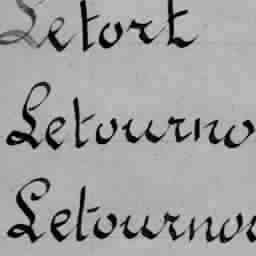 Letort
Letourno
Letournou